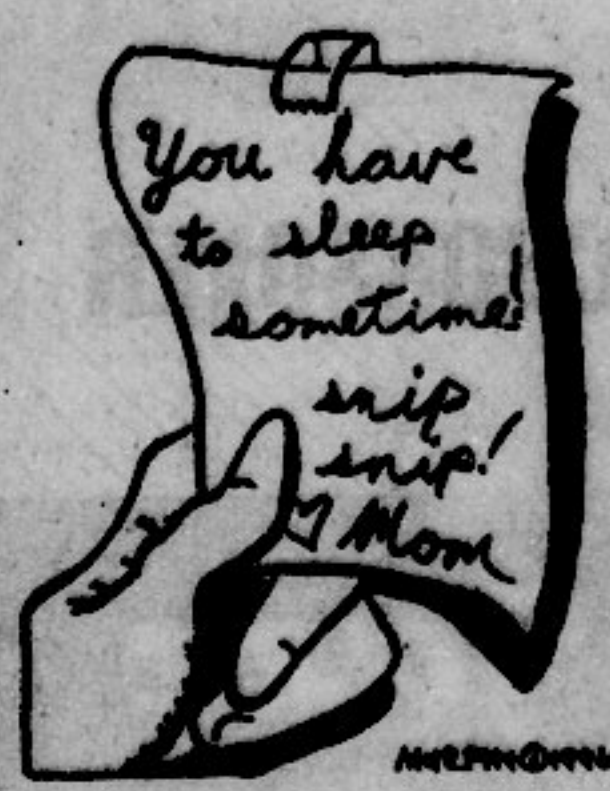 You have
to sleep
sometime!
snip
snip!
♡ Mom